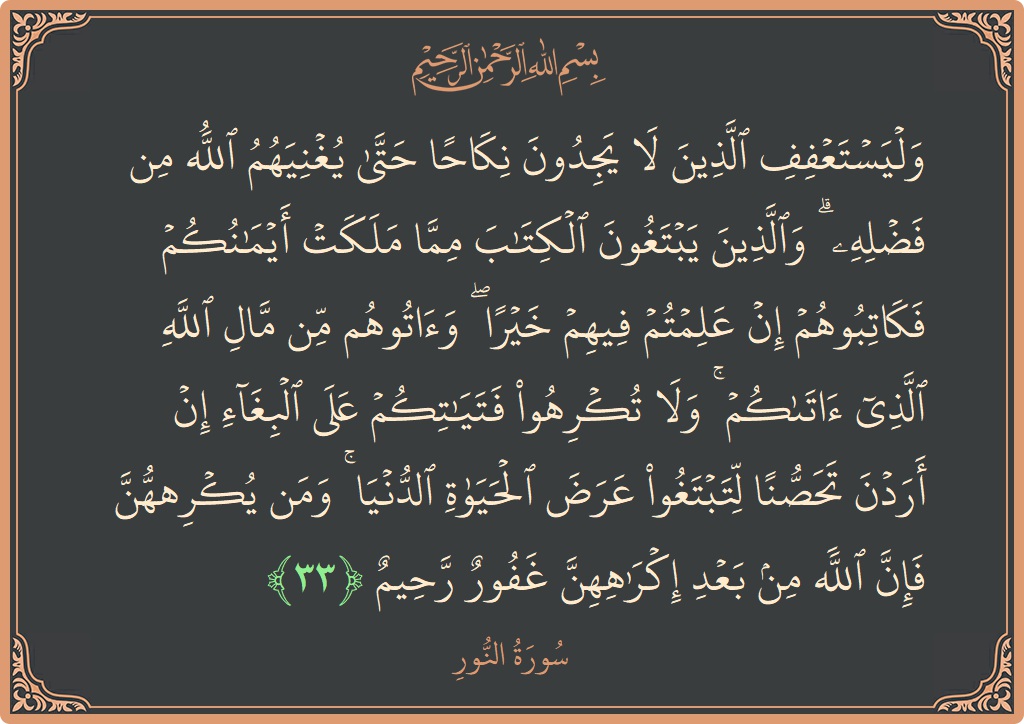 بِسْمِ اللَّهِ الرَّحْمَٰنِ الرَّحِيمِ
وَلْيَسْتَعْفِفِ ٱلَّذِينَ لَا يَجِدُونَ نِكَاحًا حَتَّىٰ يُغْنِيَهُمُ ٱللَّهُ مِن
فَضْلِهِۦ ۗ وَٱلَّذِينَ يَبْتَغُونَ ٱلْكِتَٰبَ مِمَّا مَلَكَتْ أَيْمَٰنُكُمْ
فَكَاتِبُوهُمْ إِنْ عَلِمْتُمْ فِيهِمْ خَيْرًا ۖ وَءَاتُوهُم مِّن مَّالِ ٱللَّهِ
ٱلَّذِىٓ ءَاتَىٰكُمْ ۚ وَلَا تُكْرِهُوا۟ فَتَيَٰتِكُمْ عَلَى ٱلْبِغَآءِ إِنْ
أَرَدْنَ تَحَصُّنًا لِّتَبْتَغُوا۟ عَرَضَ ٱلْحَيَوٰةِ ٱلدُّنْيَا ۚ وَمَن يُكْرِههُّنَّ
فَإِنَّ ٱللَّهَ مِنۢ بَعْدِ إِكْرَٰهِهِنَّ غَفُورٌ رَّحِيمٌ ﴿٣٣﴾
سُورَةُ النُّورِ